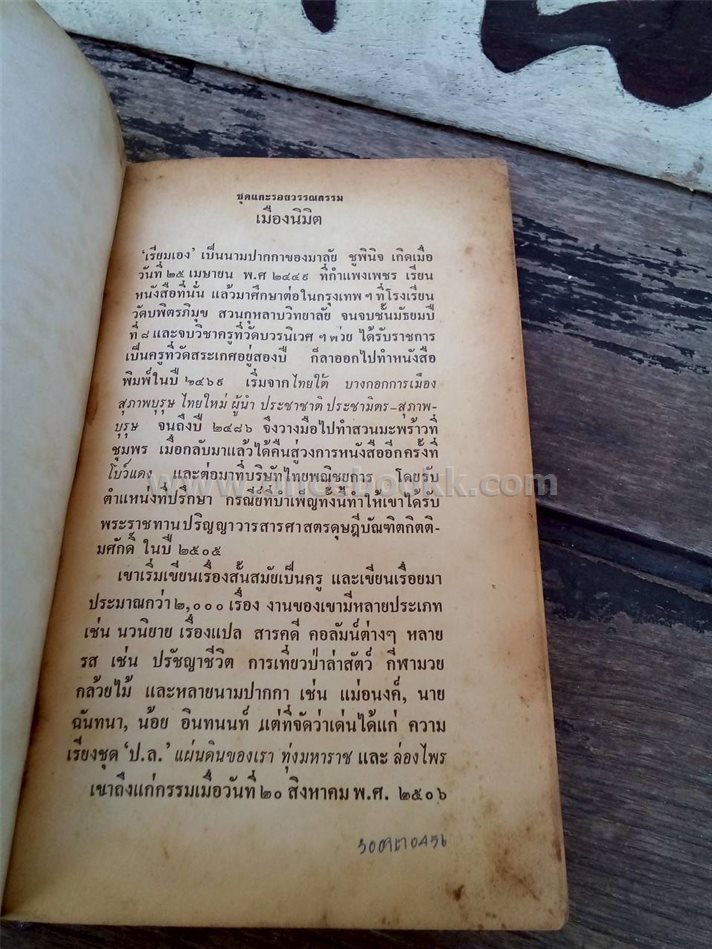 ชุดแกะรอยวรรณกรรม
เมืองนิมิต
'เรียมเอง' เป็นนามปากกาของมาลัย ชูพินิจ เกิดเมื่อ
วันที่ ๒๕ เมษายน พ.ศ ๒๔๔๙ ที่กำแพงเพชร เรียน
หนังสือที่นั่น แล้วมาศึกษาต่อในกรุงเทพ ฯ ที่โรงเรียน
วัดบพิตรภิมุข สวนกุหลาบวิทยาลัย จนจบชั้นมัธยมปี
ที่ ๘ และจบวิชาครูที่วัดบวรนิเวศ ฯ ด้วย ได้รับราชการ
เป็นครูที่วัดสระเกศอยู่สองปี ก็ลาออกไปทำหนังสือ
พิมพ์ในปี ๒๔๖๙ เริ่มจากไทยใต้ บางกอกการเมือง
สุภาพบุรุษ ไทยใหม่ ผู้นำ ประชาชาติ ประชามิตร-สุภาพ-
บุรุษ จนถึงปี ๒๔๘๖ จึงวางมือไปทำสวนมะพร้าวที่
ชุมพร เมื่อกลับมาแล้วได้คืนสู่วงการหนังสืออีกครั้งที่
โบว์แดง และต่อมาที่บริษัทไทยพณิชยการ โดยรับ
ตำแหน่งที่ปรึกษา กรณีย์ที่บำเพ็ญทั้งนี้ทำให้เขาได้รับ
พระราชทานปริญญาวารสารศาสตรดุษฎีบัณฑิตกิตติ-
มศักดิ์ ในปี ๒๕๐๕
เขาเริ่มเขียนเรื่องสั้นสมัยเป็นครู และเขียนเรื่อยมา
ประมาณกว่า ๒,๐๐๐ เรื่อง งานของเขามีหลายประเภท
เช่น นวนิยาย เรื่องแปล สารคดี คอลัมน์ต่างๆ หลาย
รส เช่น ปรัชญาชีวิต การเที่ยวป่าล่าสัตว์ กีฬามวย
กล้วยไม้ และหลายนามปากกา เช่น แม่อนงค์, นาย
ฉันทนา, น้อย อินทนนท์ แต่ที่จัดว่าเด่นได้แก่ ความ
เรียงชุด 'ป.ล.' แผ่นดินของเรา ทุ่งมหาราช และ ล่องไพร
เขาถึงแก่กรรมเมื่อวันที่ ๒๐ สิงหาคม พ.ศ. ๒๕๐๖